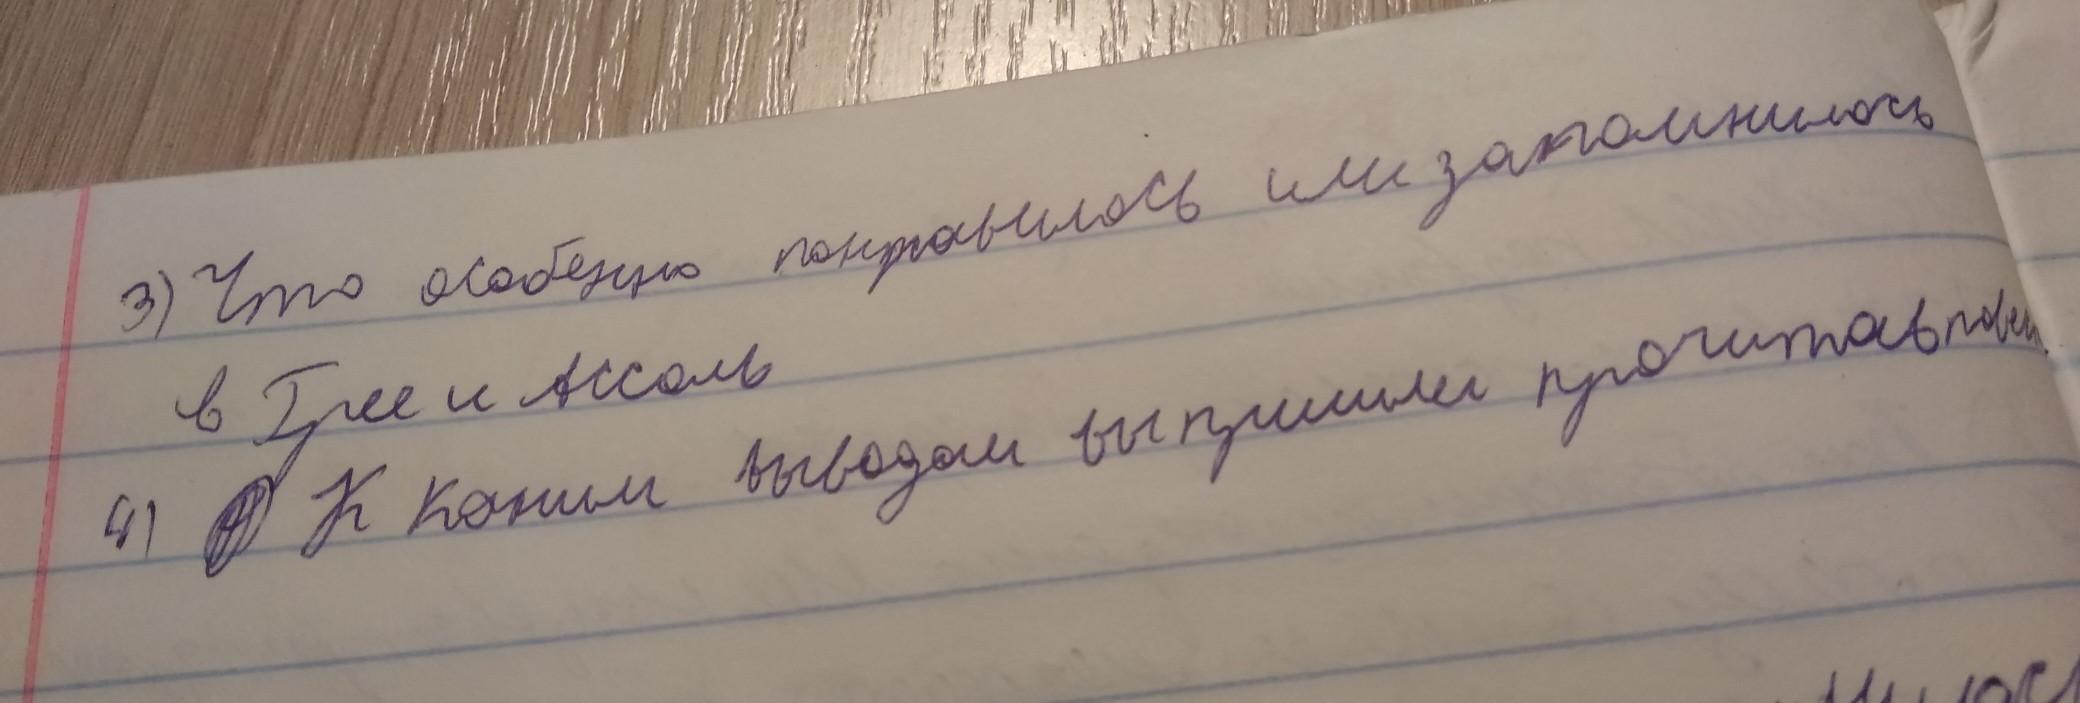 3) Что особенно понравилось или запомнилось
в Грее и Ассоль
4) К каким выводам вы пришли прочитав